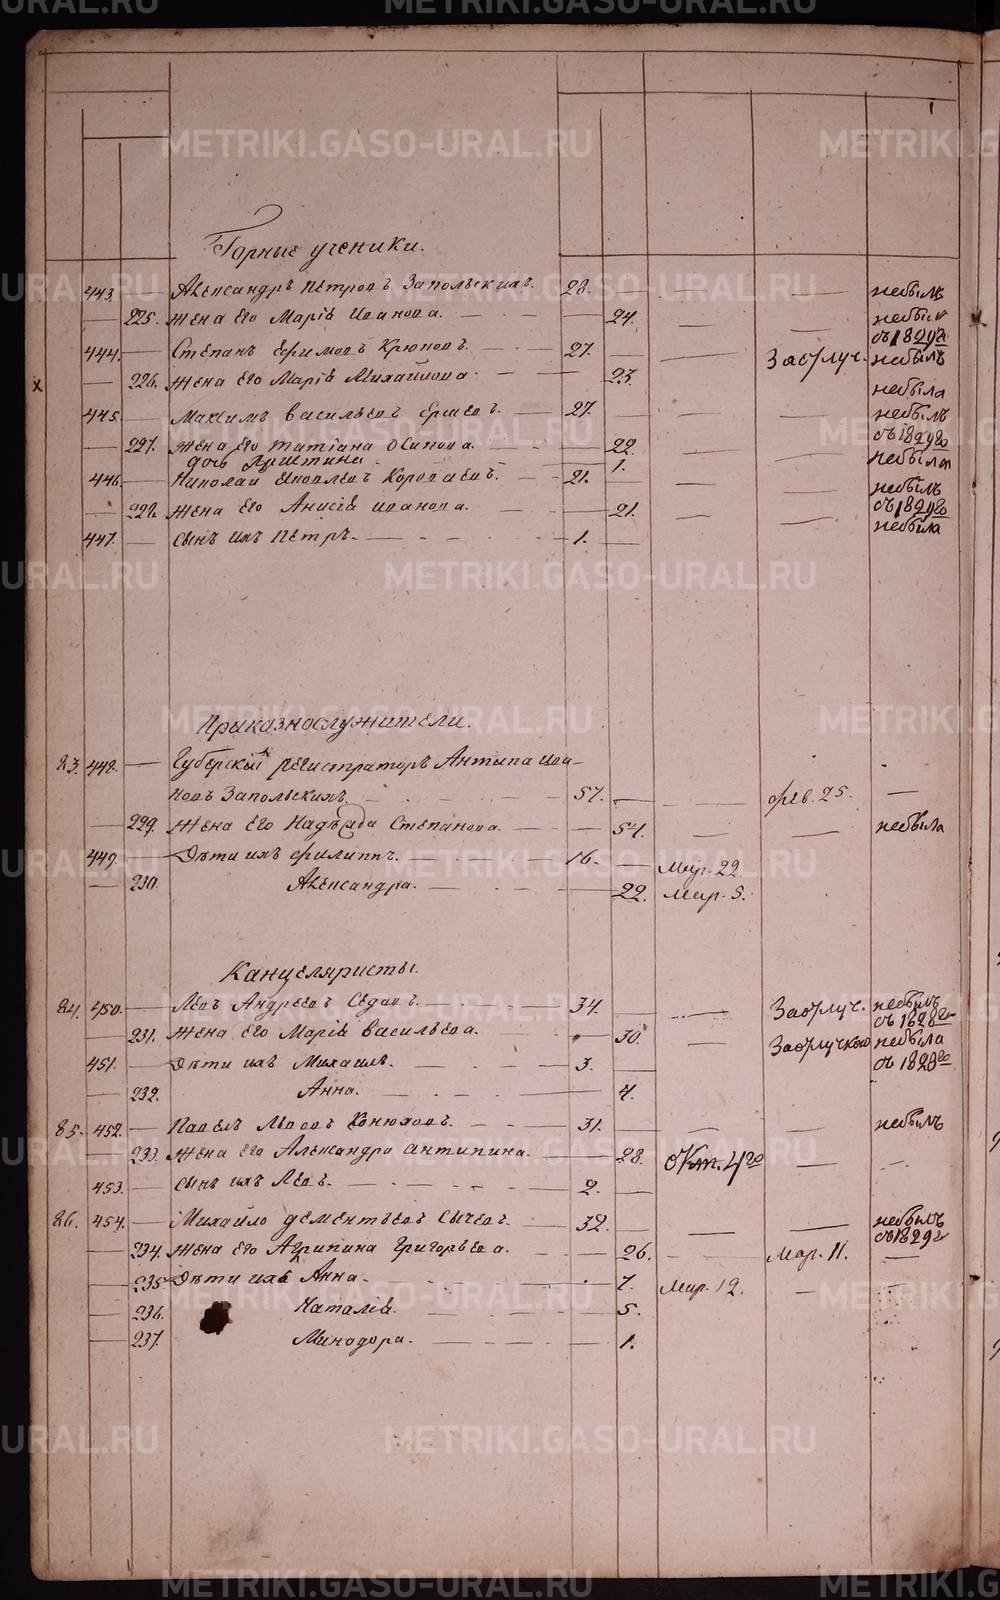 Горные ученики.
443. — Александръ Петровъ Запольскихъ. 28. — — небылъ
— 225. жена его Марія Иванова. — 24. — — небыла съ 1829го
444. — Степанъ Ефимовъ Крюковъ. — 27. — — Заотлуч. небылъ
— 226. жена его Марія Михайлова. — 23. небыла
445. — Максимъ Васильевъ Ершевъ. — 27. — — небылъ
— 227. жена его Татіана Осипова. — 22. — — съ 1829го
дочь Христина — 1. небыла
446. — Николай Яковлевъ Короваевъ. — 21. — — небылъ
— 228. жена его Анисія Иванова. — 21. — — съ 1829го
447. — сынъ ихъ Петръ. — 1. — небыла
Приказнослужители.
83. 448. — Губерскій регистраторъ Антипа Ива-
новъ Запольскихъ. — 57. — — фев. 25. —
— 229. жена его Надежда Степанова. — 54. — — небыла
449. — Дѣти ихъ Филиппъ. — 16. — Мар. 22.
— 230. Александра. — 22. Мар. 5.
Канцеляристы.
84. 450. — Левъ Андреевъ Седовъ. — 34. — — Заотлуч. небылъ съ 1828го
— 231. жена его Марія Васильева. — 30. — Заотлучкою небыла
451. — Дѣти ихъ Михаилъ. — 3. — съ 1828го
— 232. Анна. — 4.
85. 452. — Павелъ Львовъ Конюховъ. — 31. — — — небылъ
— 233. жена его Александра Антипина. — 28. Окт. 4го — —
453. — сынъ ихъ Левъ. — 2. —
86. 454. — Михайло Дементьевъ Сычевъ. — 32. — — — небылъ съ 1829го
— 234. жена его Агрипина Григорьева. — 26. — Мар. 11. —
— 235. Дѣти ихъ Анна. — 7. Мар. 12. — —
— 236. Наталія. — 5.
— 237. Минодора. — 1.
METRIKI.GASO-URAL.RU